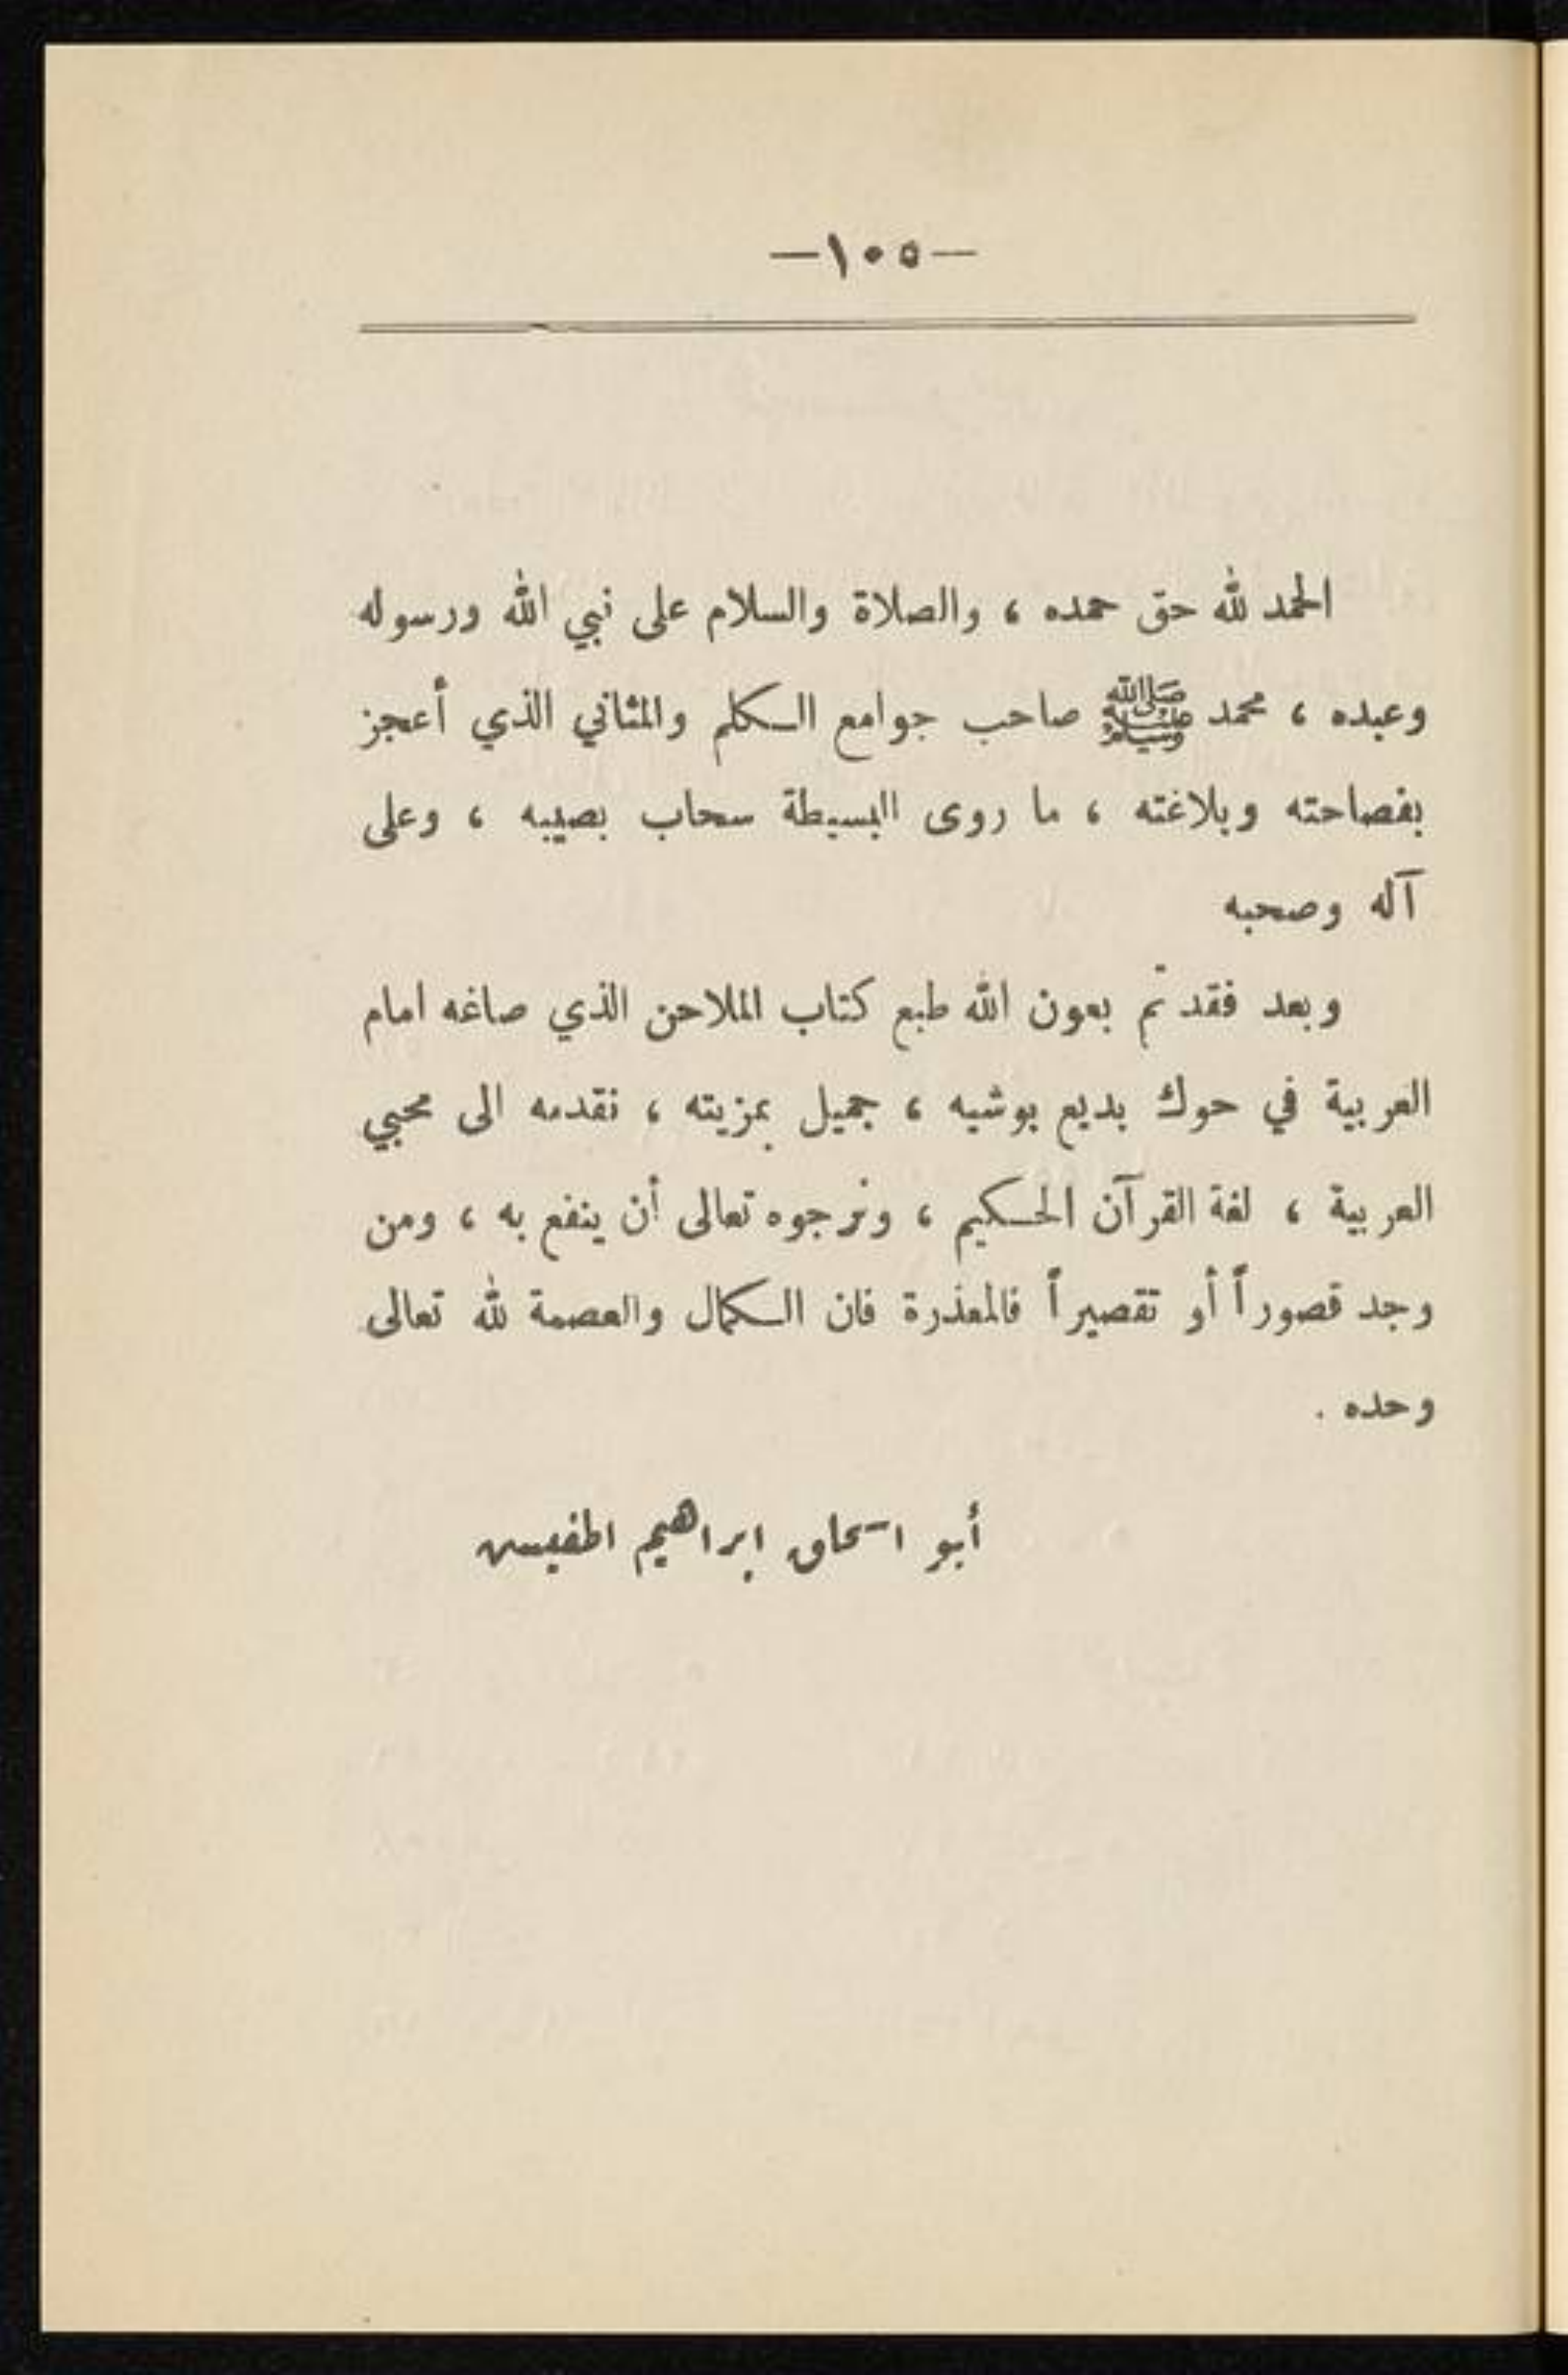 —١٠٥—
الحمد لله حق حمده ، والصلاة والسلام على نبي الله ورسوله
وعبده ، محمد ﷺ صاحب جوامع الكلم والمثاني الذي أعجز
بفصاحته وبلاغته ، ما روى البسيطة سحاب بصيبه ، وعلى
آله وصحبه
وبعد فقد تم بعون الله طبع كتاب الملاحن الذي صاغه امام
العربية في حوك بديع بوشيه ، جميل بمزيته ، نقدمه الى محبي
العربية ، لغة القرآن الحكيم ، ونرجوه تعالى أن ينفع به ، ومن
وجد قصوراً أو تقصيراً فالمعذرة فان الكمال والعصمة لله تعالى
وحده .
أبو اسحاق ابراهيم اطفيش